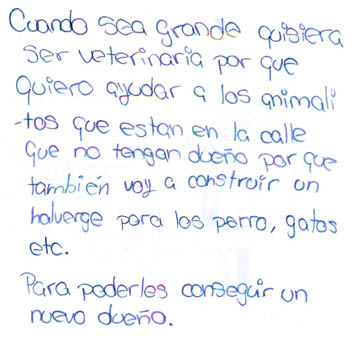 Cuando sea grande quisiera
ser veterinaria por que
quiero ayudar a los animali
-tos que estan en la calle
que no tengan dueño por que
también voy a construir un
halverge para los perro, gatos
etc.
Para poderles conseguir un
nuevo dueño.